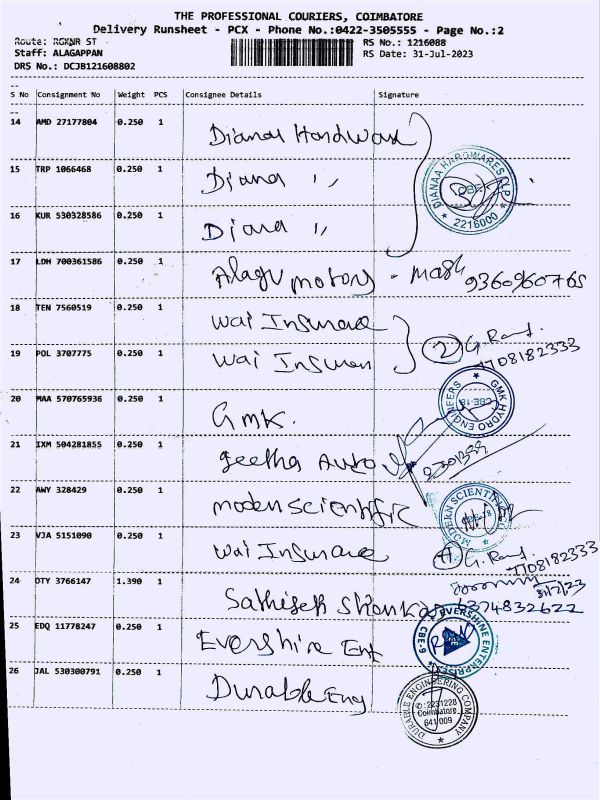 THE PROFESSIONAL COURIERS, COIMBATORE
Delivery Runsheet - PCX - Phone No.:0422-3505555 - Page No.:2
Route: RGKNR ST
RS No.: 1216088
Staff: ALAGAPPAN
RS Date: 31-Jul-2023
DRS No.: DCJB121608802
S No Consignment No Weight PCS Consignee Details Signature
14 AMD 27177804 0.250 1 Dianal Hardware
15 TRP 1066468 0.250 1 Diana ,,
DIANAA HARDWARES LLP CBE 2216000
16 KUR 530328586 0.250 1 Diana ,,
17 LDH 700361586 0.250 1 Alagu motors - 9360960765
18 TEN 7560519 0.250 1 Wai Insurance
19 POL 3707775 0.250 1 Wai Insuran 2 G. 7708182333
20 MAA 570765936 0.250 1 GMK.
GMK HYDRO ENGINEERS CBE-18
21 IXM 504281855 0.250 1 Geetha Auto
22 AWY 328429 0.250 1 modern scientific
MODERN SCIENTIFIC
23 VJA 5151090 0.250 1 Wai Insurance G. 7708182333
24 OTY 3766147 1.390 1 Sathish Shankar 6374832622
31/7/23
25 EDQ 11778247 0.250 1 Evershine Ent
EVERSHINE ENTERPRISES CBE-9
26 JAL 530300791 0.250 1 Durable Eng
DURABLE ENGINEERING COMPANY
2231228
Coimbatore
641 009